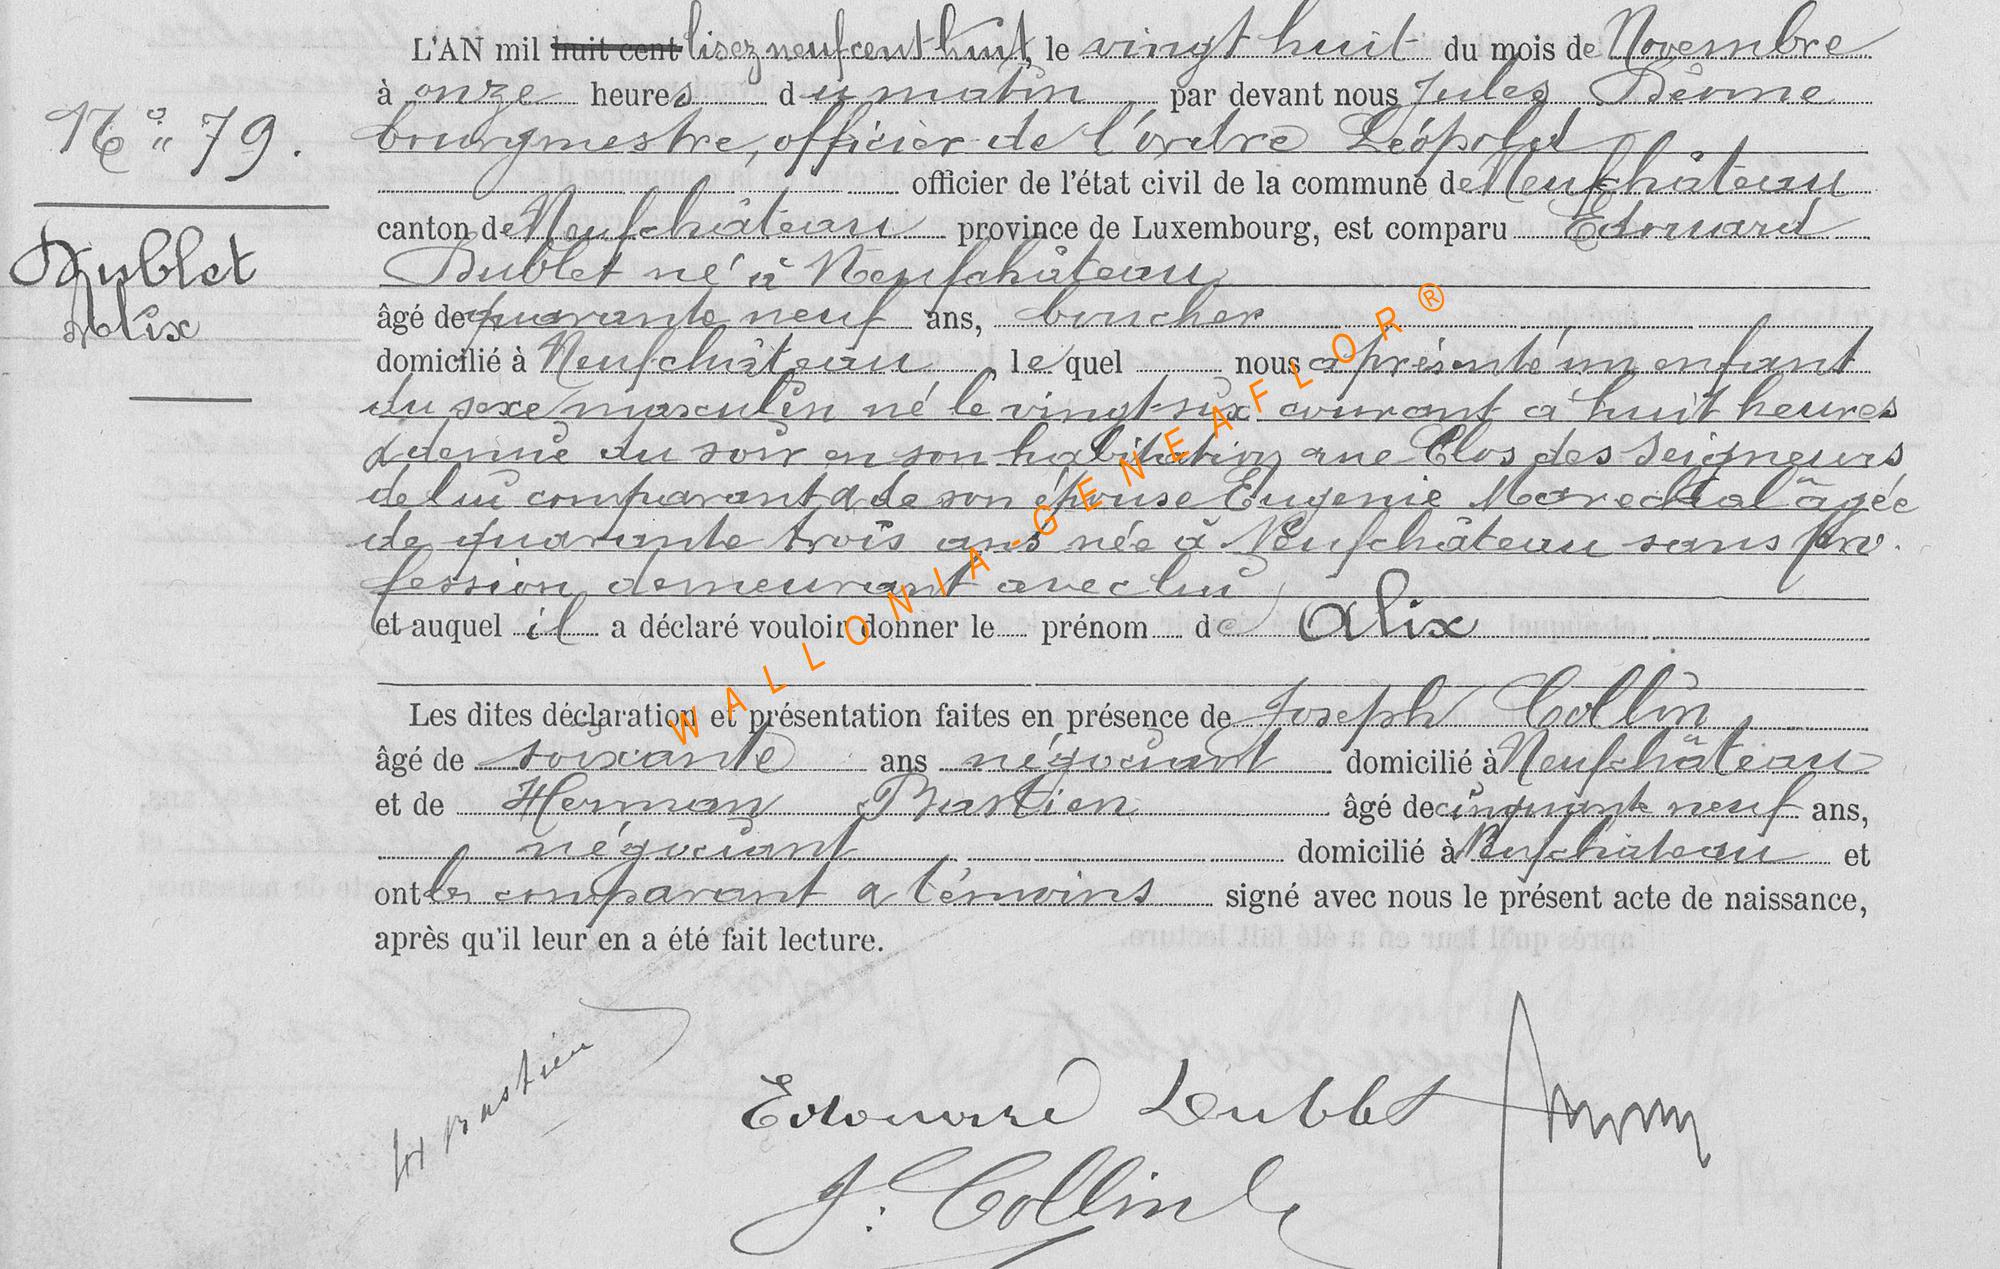 L'AN mil huit cent lisez neuf cent huit, le vingt huit du mois de Novembre
à onze heures du matin par devant nous Jules
bourgmestre, officier de l'ordre Léopold
officier de l'état civil de la commune de Neufchâteau
canton de Neufchâteau province de Luxembourg, est comparu Edouard
Dublet né à Neufchâteau
âgé de quarante neuf ans, boucher
domicilié à Neufchâteau lequel nous a présenté un enfant
du sexe masculin né le vingt-six courant à huit heures
& demie du soir en son habitation rue Clos des Seigneurs
de lui comparant & de son épouse Eugenie Marechal âgée
de quarante trois ans née à Neufchâteau sans pro-
fession demeurant avec lui
et auquel il a déclaré vouloir donner le prénom de Alix
Les dites déclaration et présentation faites en présence de Joseph Collin
âgé de soixante ans négociant domicilié à Neufchâteau
et de Herman Bastien âgé de cinquante neuf ans,
négociant domicilié à Neufchateau et
ont les comparant & témoins signé avec nous le présent acte de naissance,
après qu'il leur en a été fait lecture.
No 79.
Dublet
Alix
H Bastien
Edouard Dublet
J. Collin
WALLONIA-GENEAFLOR®